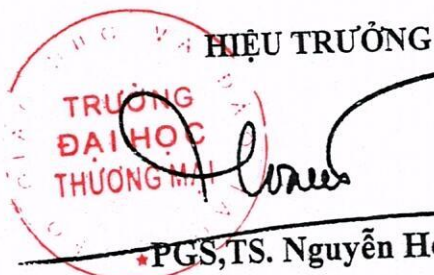 HIỆU TRƯỞNG
TRƯỜNG
ĐẠI HỌC
THƯƠNG MẠI
PGS,TS. Nguyễn